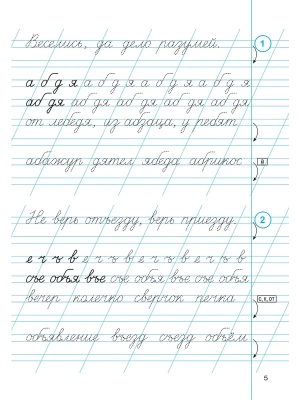 Веселись, да дело разумей.
1
а б д я а б д я а б д я а б д я
аб дя аб дя аб дя аб дя аб дя
от лебедя, из абзаца, у ребят
абажур дятел ябеда абрикос
В
Не верь отъезду, верь приезду.
2
е ч ъ в е ч ъ в е ч ъ в е ч ъ в
съе объя въе съе объя въе съе объя
вечер колечко сверчок печка
С, К, ОТ
объявление въезд съезд объём
5